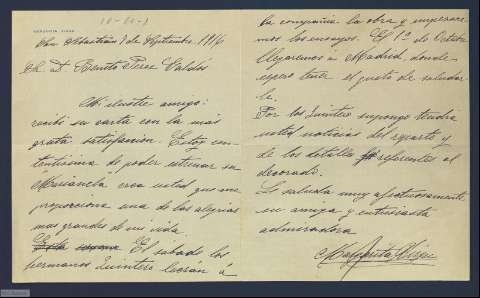 MARGARITA XIRGU
San Sebastián 9 de Septiembre 1916
Sr. D. Benito Pérez Galdós
Mi ilustre amigo:
recibí su carta con la más
grata satisfacción. Estoy con-
tentísima de poder estrenar su
"Marianela" crea usted que me
proporciona una de las alegrias
mas grandes de mi vida.
El sábado los
hermanos Quintero leerán á
la compañia la obra y empezare-
mos los ensayos. El 1º de Octubre
llegaremos á Madrid, donde
espero tener el gusto de saludar-
le.
Por los Quintero supongo tendrá
usted noticias del reparto y
de los detalles referentes al
decorado.
Le saluda muy afectuosamente
su amiga y entusiasta
admiradora
Margarita Xirgu